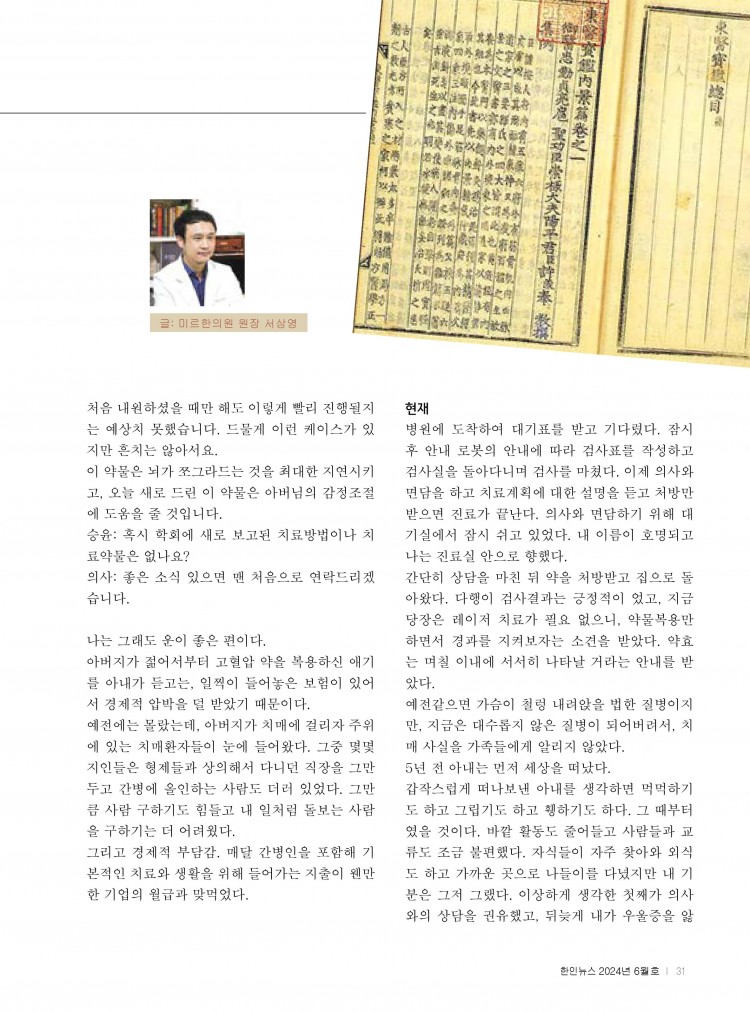 東醫寶鑑總目
東醫寶鑑內景篇卷之一
御醫忠勤貞亮扈聖功臣崇祿大夫陽平君臣許浚奉敎撰
集例
글: 미르한의원 원장 서상영
처음 내원하셨을 때만 해도 이렇게 빨리 진행될지
는 예상치 못했습니다. 드물게 이런 케이스가 있
지만 흔치는 않아서요.
이 약물은 뇌가 쪼그라드는 것을 최대한 지연시키
고, 오늘 새로 드린 이 약물은 아버님의 감정조절
에 도움을 줄 것입니다.
승윤: 혹시 학회에 새로 보고된 치료방법이나 치
료약물은 없나요?
의사: 좋은 소식 있으면 맨 처음으로 연락드리겠
습니다.
나는 그래도 운이 좋은 편이다.
아버지가 젊어서부터 고혈압 약을 복용하신 얘기
를 아내가 듣고는, 일찍이 들어놓은 보험이 있어
서 경제적 압박을 덜 받았기 때문이다.
예전에는 몰랐는데, 아버지가 치매에 걸리자 주위
에 있는 치매환자들이 눈에 들어왔다. 그중 몇몇
지인들은 형제들과 상의해서 다니던 직장을 그만
두고 간병에 올인하는 사람도 더러 있었다. 그만
큼 사람 구하기도 힘들고 내 일처럼 돌보는 사람
을 구하기는 더 어려웠다.
그리고 경제적 부담감. 매달 간병인을 포함해 기
본적인 치료와 생활을 위해 들어가는 지출이 웬만
한 기업의 월급과 맞먹었다.
현재
병원에 도착하여 대기표를 받고 기다렸다. 잠시
후 안내 로봇의 안내에 따라 검사표를 작성하고
검사실을 돌아다니며 검사를 마쳤다. 이제 의사와
면담을 하고 치료계획에 대한 설명을 듣고 처방만
받으면 진료가 끝난다. 의사와 면담하기 위해 대
기실에서 잠시 쉬고 있었다. 내 이름이 호명되고
나는 진료실 안으로 향했다.
간단히 상담을 마친 뒤 약을 처방받고 집으로 돌
아왔다. 다행이 검사결과는 긍정적이 었고, 지금
당장은 레이저 치료가 필요 없으니, 약물복용만
하면서 경과를 지켜보자는 소견을 받았다. 약효
는 며칠 이내에 서서히 나타날 거라는 안내를 받
았다.
예전같으면 가슴이 철렁 내려앉을 법한 질병이지
만, 지금은 대수롭지 않은 질병이 되어버려서, 치
매 사실을 가족들에게 알리지 않았다.
5년 전 아내는 먼저 세상을 떠났다.
갑작스럽게 떠나보낸 아내를 생각하면 먹먹하기
도 하고 그립기도 하고 휑하기도 하다. 그 때부터
였을 것이다. 바깥 활동도 줄어들고 사람들과 교
류도 조금 불편했다. 자식들이 자주 찾아와 외식
도 하고 가까운 곳으로 나들이를 다녔지만 내 기
분은 그저 그랬다. 이상하게 생각한 첫째가 의사
와의 상담을 권유했고, 뒤늦게 내가 우울증을 앓
한인뉴스 2024년 6월호 | 31